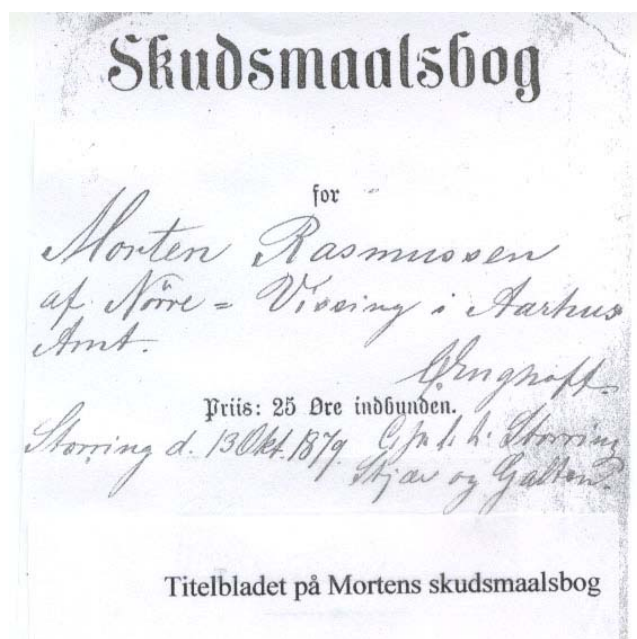 Skudsmaalsbog
for
Morten Rasmussen
af Nørre = Vissing i Aarhus
Amt.
Enghoff.
Priis: 25 Øre indbunden.
Storring d. 13 Okt. 1879. Storring
Stjær og Galten
Titelbladet på Mortens skudsmaalsbog